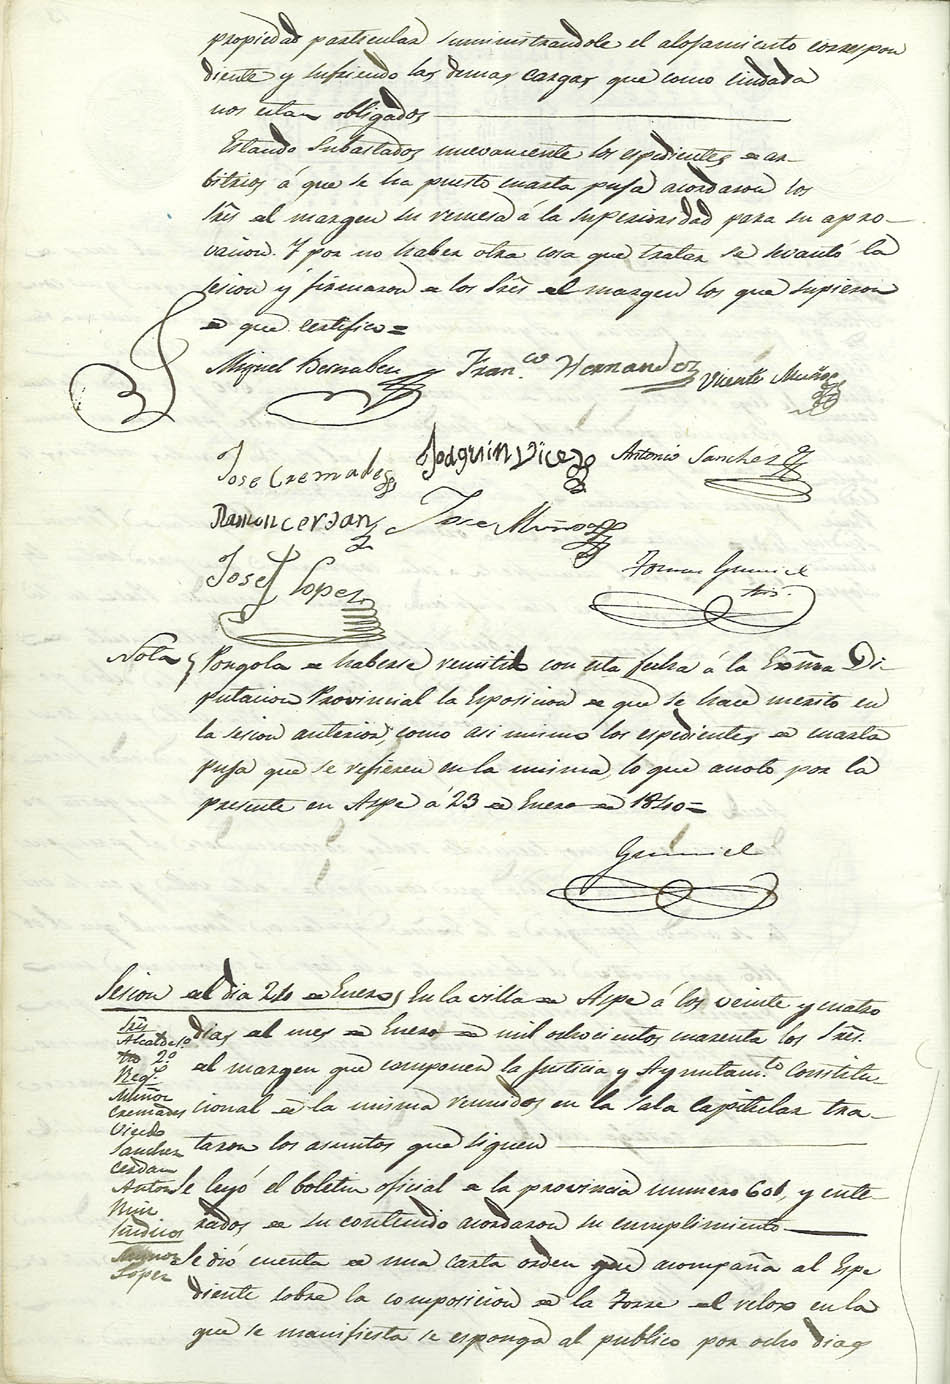 propiedad particular suministrandole el alojamiento correspon
diente y sufriendo las demas cargas que como ciudada
nos estan obligados
Estando Subastados nuevamente los espedientes de ar
bitrios á que se ha puesto cuarta puja acordaron los
Srēs del margen su remesa á la superioridad para su apro-
vacion. Y por no haber otra cosa que tratar se levantó la
sesion y firmaron de los Srēs del margen los que supieron
de que certifico=
Miguel Bernabeu Fran.co Hernandez Vicente Muñoz
Jose Cremades Joaquin Vicedo Antonio Sanchez
Ramon cerdan Jose Muñoz
Jose Lopez
Nota Pongola de haberse remitido con esta fecha á la Exma Di-
putacion Provincial la Esposicion de que se hace merito en
la sesion anterior, como asi mismo los espedientes de cuarta
puja que se refieren en la misma, lo que anoto por la
presente en Aspe á 23 de Enero de 1840=
Sesion del dia 24 de Enero, En la villa de Aspe á los veinte y cuatro
dias del mes de Enero de mil ochocientos cuarenta los Srēs.
del margen que componen la Justicia y Ayuntam.to Constitu-
cional de la misma reunidos en la sala Capitular tra-
taron los asuntos que siguen
Srēs
Alcalde 1.o
Ito 2.o
Reg.s
Muñoz
Cremades
Vicedo
Sanchez
Cerdan
Anton
Ruiz
Sindicos
Muñoz
Lopez
Se leyó el boletin oficial de la provincia numero 606, y ente-
rados de su contenido acordaron su cumplimiento
Se dió cuenta de una carta orden que acompaña al Espe
diente sobre la composicion de la Torre del relox en la
que se manifiesta se esponga al publico por ocho dias